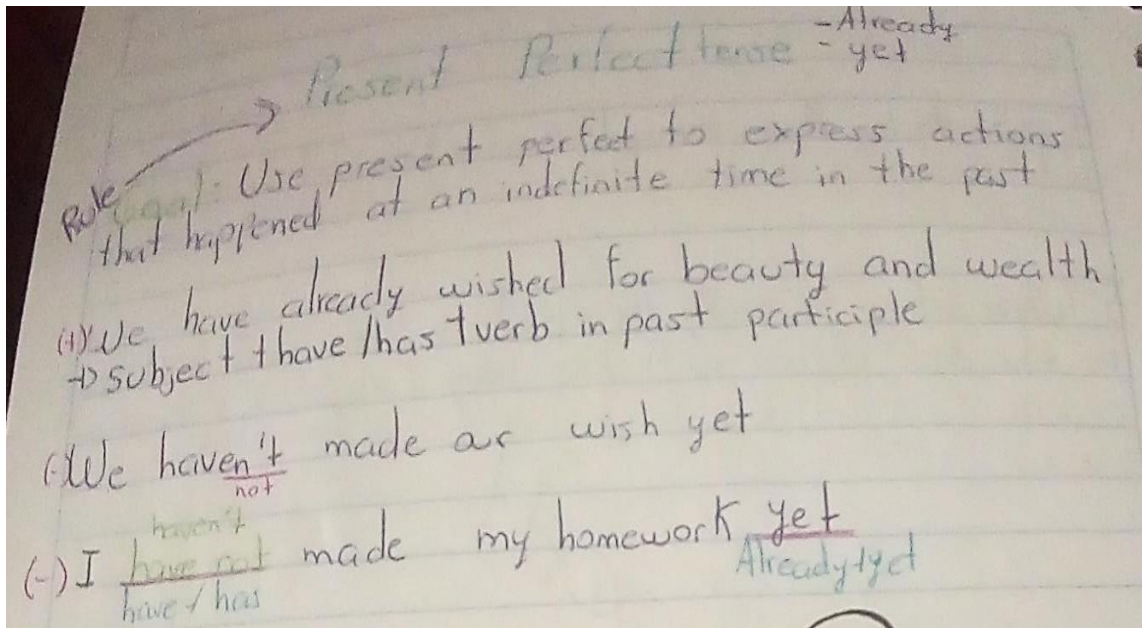 - Already
Present Perfect tense - yet
Rule
Goal: Use present perfect to express actions
that happened at an indefinite time in the past
(+) We have already wished for beauty and wealth
→ subject + have /has + verb in past participle
(-) We haven't made our wish yet
not
haven't
(-) I have not made my homework yet
have / has Already + yet